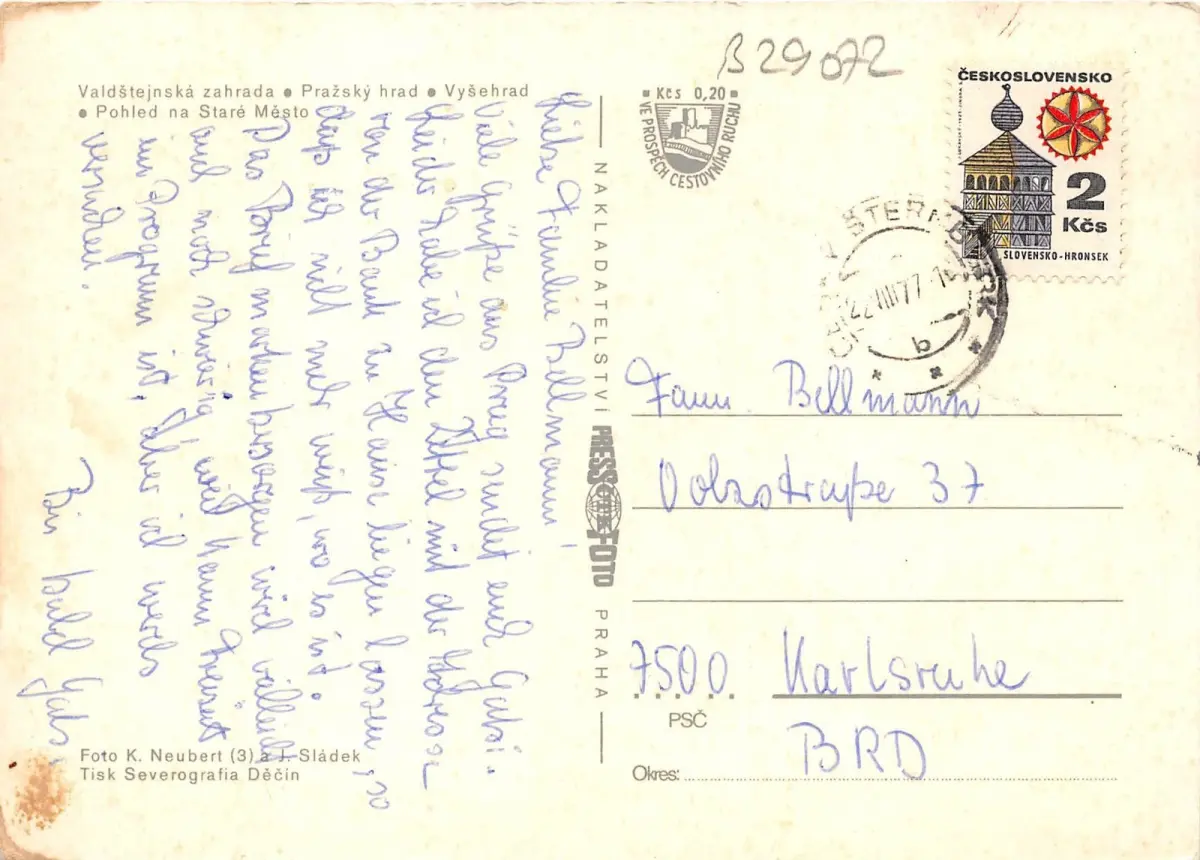 B29072
Valdštejnská zahrada ● Pražský hrad ● Vyšehrad
● Pohled na Staré Město
Liebe Familie Bellmann!
Viele Grüße aus Prag sendet euch Gabi.
Leider habe ich den Zettel mit der Adresse
von der Bank zu Hause liegen lassen, so
daß ich nicht mehr weiß, wo es ist.
Das Briefmarkenbesorgen wird vielleicht
auch noch schwierig, weil kaum Freizeit
im Programm ist, aber ich werds
versuchen.
Bis bald Gabi
Foto K. Neubert (3) a J. Sládek
Tisk Severografia Děčín
NAKLADATELSTVÍ PRESSFOTO PRAHA
ČTK
Kčs 0,20
VE PROSPĚCH CESTOVNÍHO RUCHU
ČESKOSLOVENSKO
2
Kčs
SLOVENSKO-HRONSEK
ŠTERNBERK
22.VIII.77
b
Fam. Bellmann
Volzstraße 37
7500 Karlsruhe
PSČ
BRD
Okres: